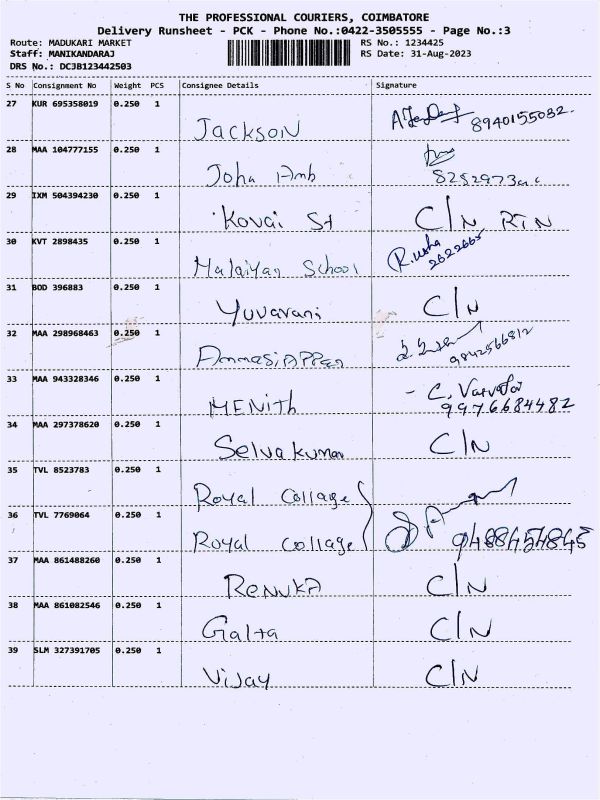 THE PROFESSIONAL COURIERS, COIMBATORE
Delivery Runsheet - PCK - Phone No.:0422-3505555 - Page No.:3
Route: MADUKARI MARKET RS No.: 1234425
Staff: MANIKANDARAJ RS Date: 31-Aug-2023
DRS No.: DCJB123442503
S No Consignment No Weight PCS Consignee Details Signature
27 KUR 695358019 0.250 1
Jackson 8940155032
28 MAA 104777155 0.250 1
John Amb
29 IXM 504394230 0.250 1
Kovai St C/N RTN
30 KVT 2898435 0.250 1
Malaiyan School R.usha 2622665
31 BOD 396883 0.250 1
Yuvarani C/N
32 MAA 298968463 0.250 1
AmmasiAPPan 9842566812
33 MAA 943328346 0.250 1
MENith - C. 9976684482
34 MAA 297378620 0.250 1
Selvakumar C/N
35 TVL 8523783 0.250 1
Royal Collage
36 TVL 7769064 0.250 1
Royal Collage 9488454845
37 MAA 861488260 0.250 1
RENUKA C/N
38 MAA 861082546 0.250 1
C/N
39 SLM 327391705 0.250 1
Vijay C/N